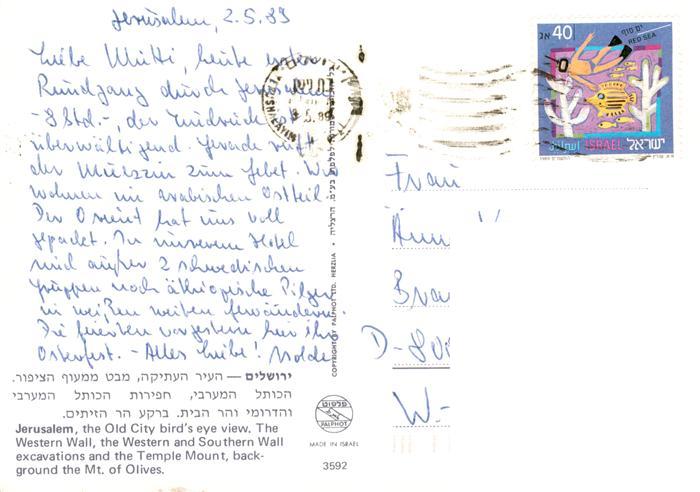 Jerusalem, 2.5.89
Liebe Mutti, heute erster
Rundgang durch Jerusalem
-8 Std.-, der Eindruck ist
überwältigend. Gerade ruft
der Muezzin zum Gebet. Wir
wohnen im arabischen Ostteil.
Der Orient hat uns voll
gepackt. In unserem Hotel
sind außer 2 schwedischen
Gruppen noch äthiopische Pilger
in weißen weiten Gewändern.
Die feierten vorgestern hier ihr
Osterfest. - Alles Liebe! Isolde
ירושלים — העיר העתיקה, מבט ממעוף הציפור.
הכותל המערבי, חפירות הכותל המערבי
והדרומי והר הבית. ברקע הר הזיתים.
Jerusalem, the Old City bird's eye view. The
Western Wall, the Western and Southern Wall
excavations and the Temple Mount, back-
ground the Mt. of Olives.
COPYRIGHT BY PALPHOT LTD. HERZLIA •
פלפוט
PALPHOT
MADE IN ISRAEL
3592
40
ים סוף
RED SEA
ישראל ISRAEL اسرائيل
Frau
Änn
Bra
D-
W.-